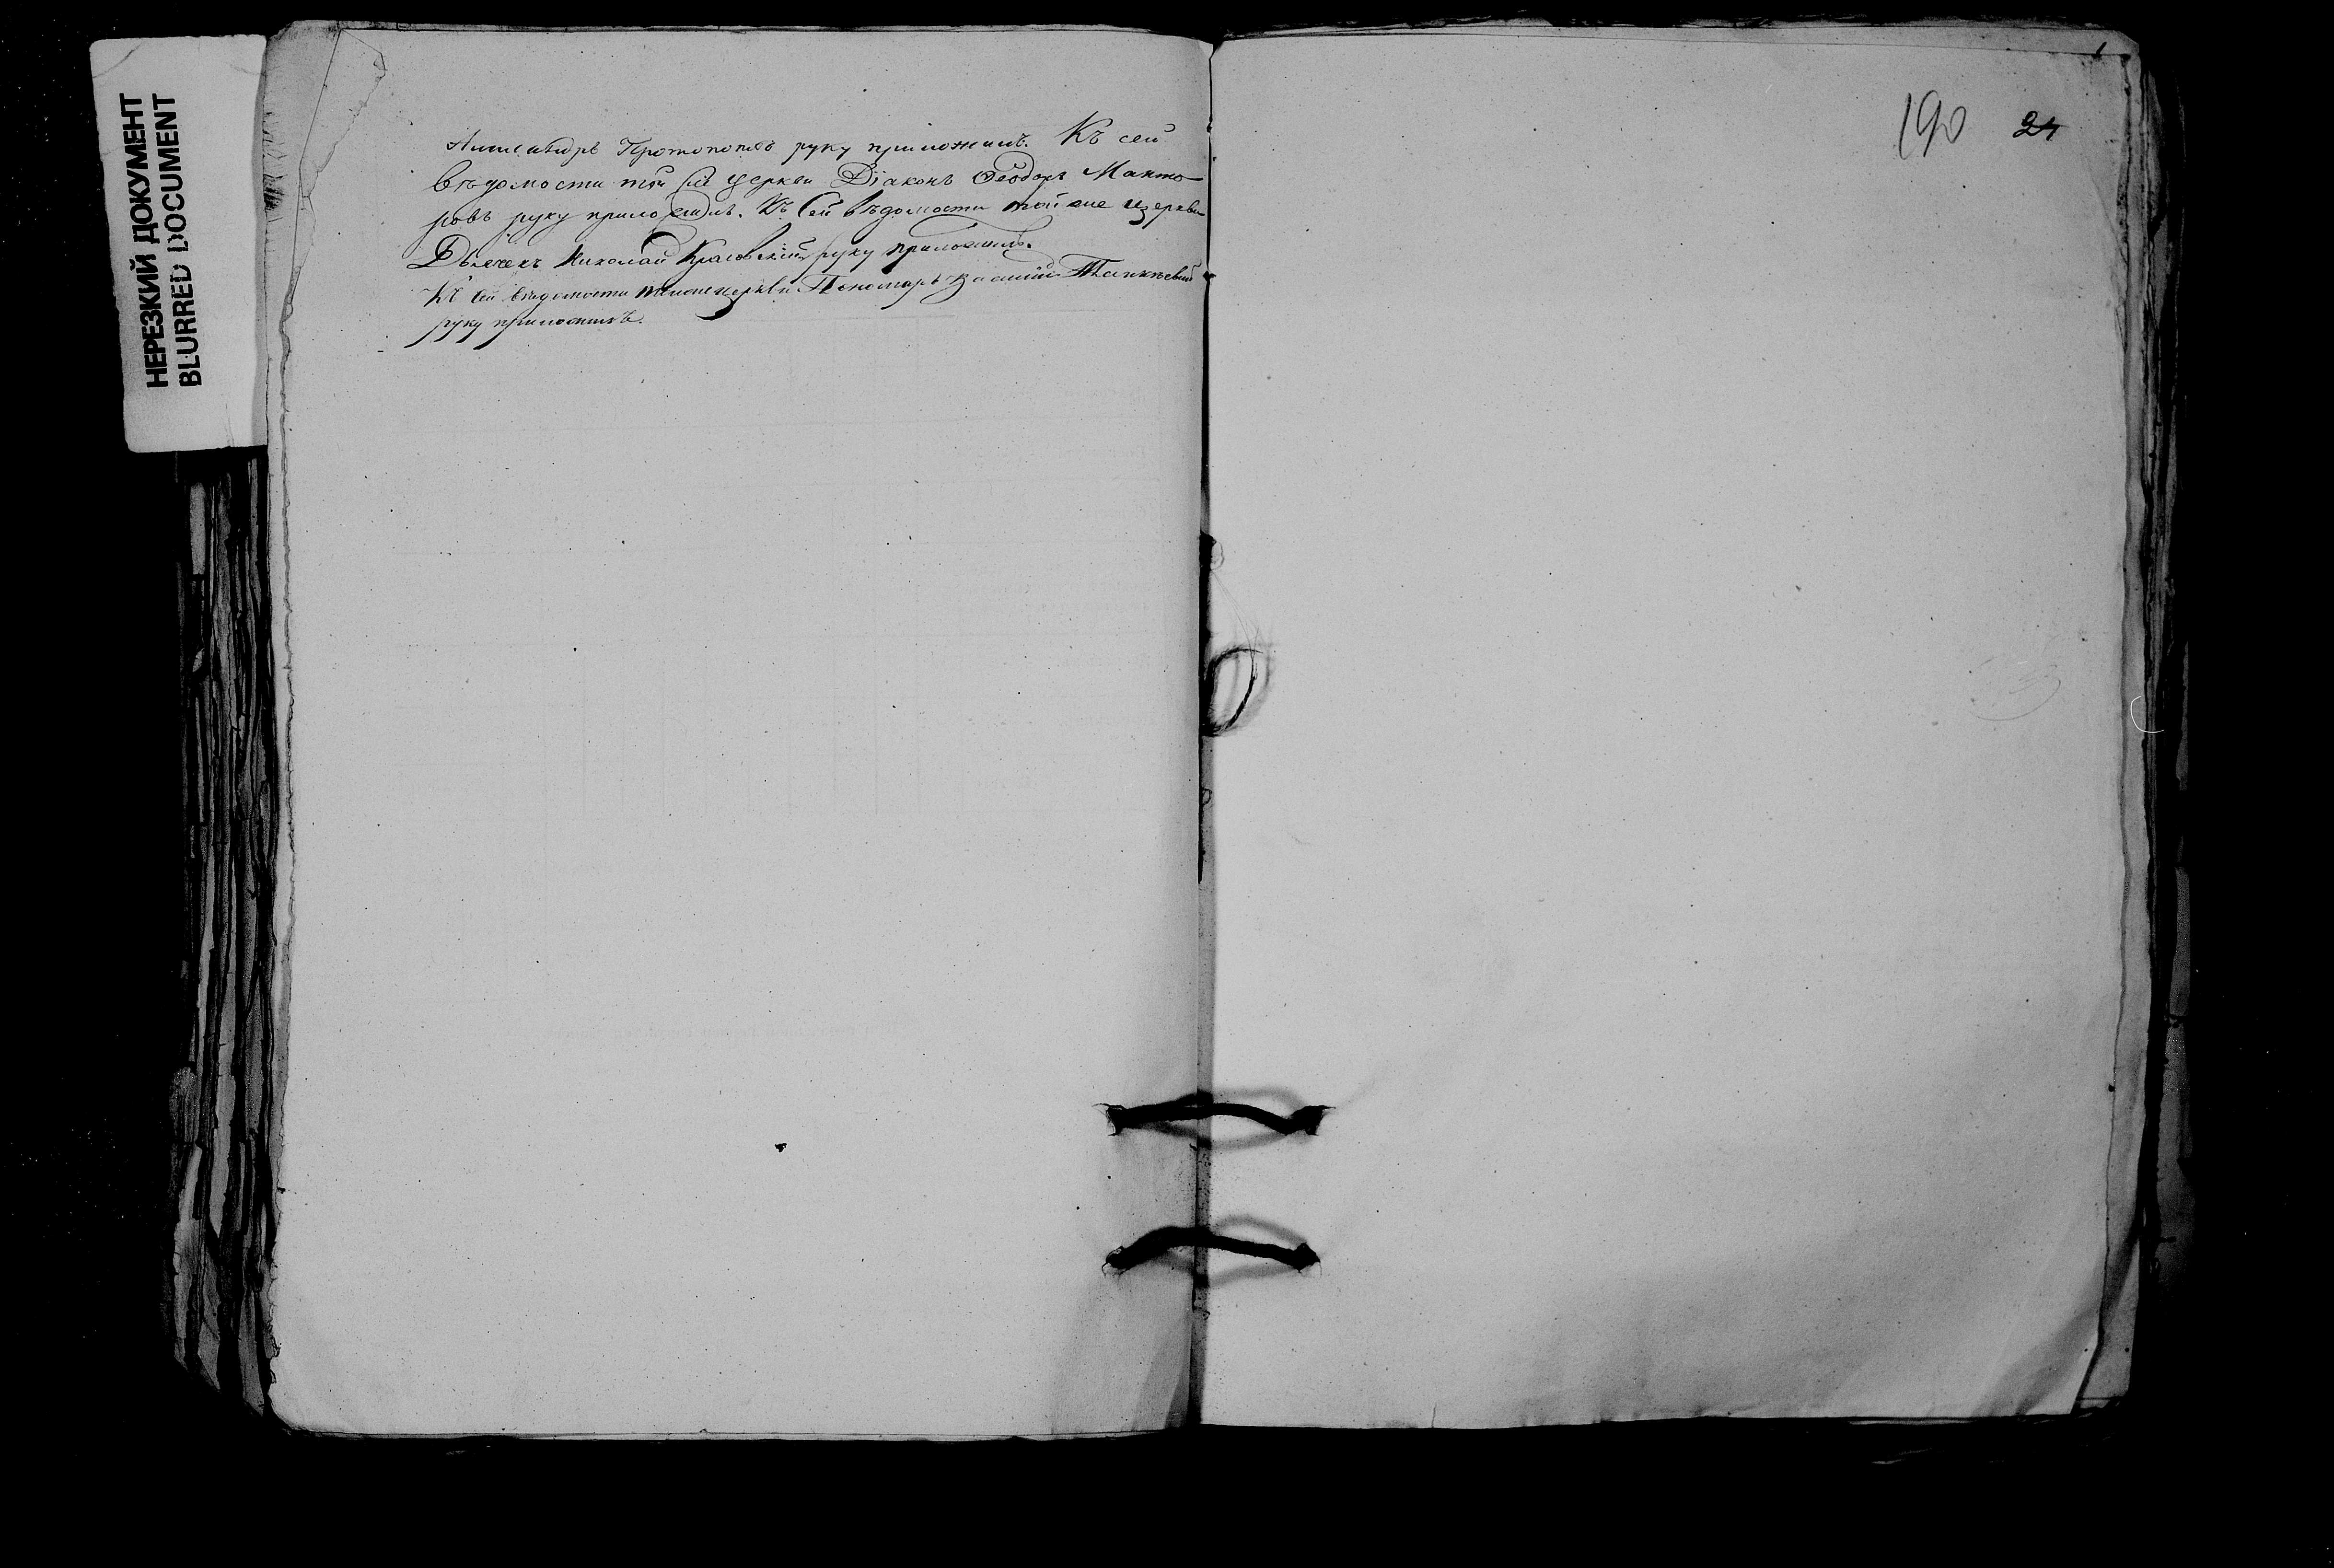 НЕРЕЗКИЙ ДОКУМЕНТ
BLURRED DOCUMENT
Александръ Протопоповъ руку приложилъ. Къ сей
вѣдомости той же церкви Діаконъ Ѳеодоръ Манто-
ровъ руку приложилъ. Къ сей вѣдомости той же церкви
Дьячекъ Николай руку приложилъ.
Къ сей вѣдомости той же церкви Пономарь Василій
руку приложилъ.
190 24